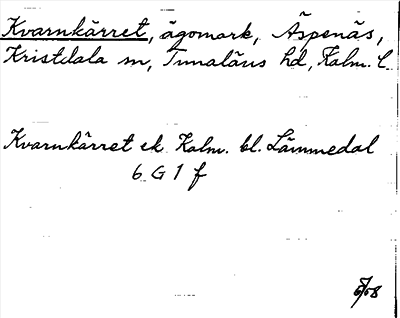 Kvarnkärret, ägomark, Äspenäs,
Kristdala sn, Tunaläns hd, Kalm. l.
Kvarnkärret ek. Kalm. bl. Lämmedal
6 G 1 f